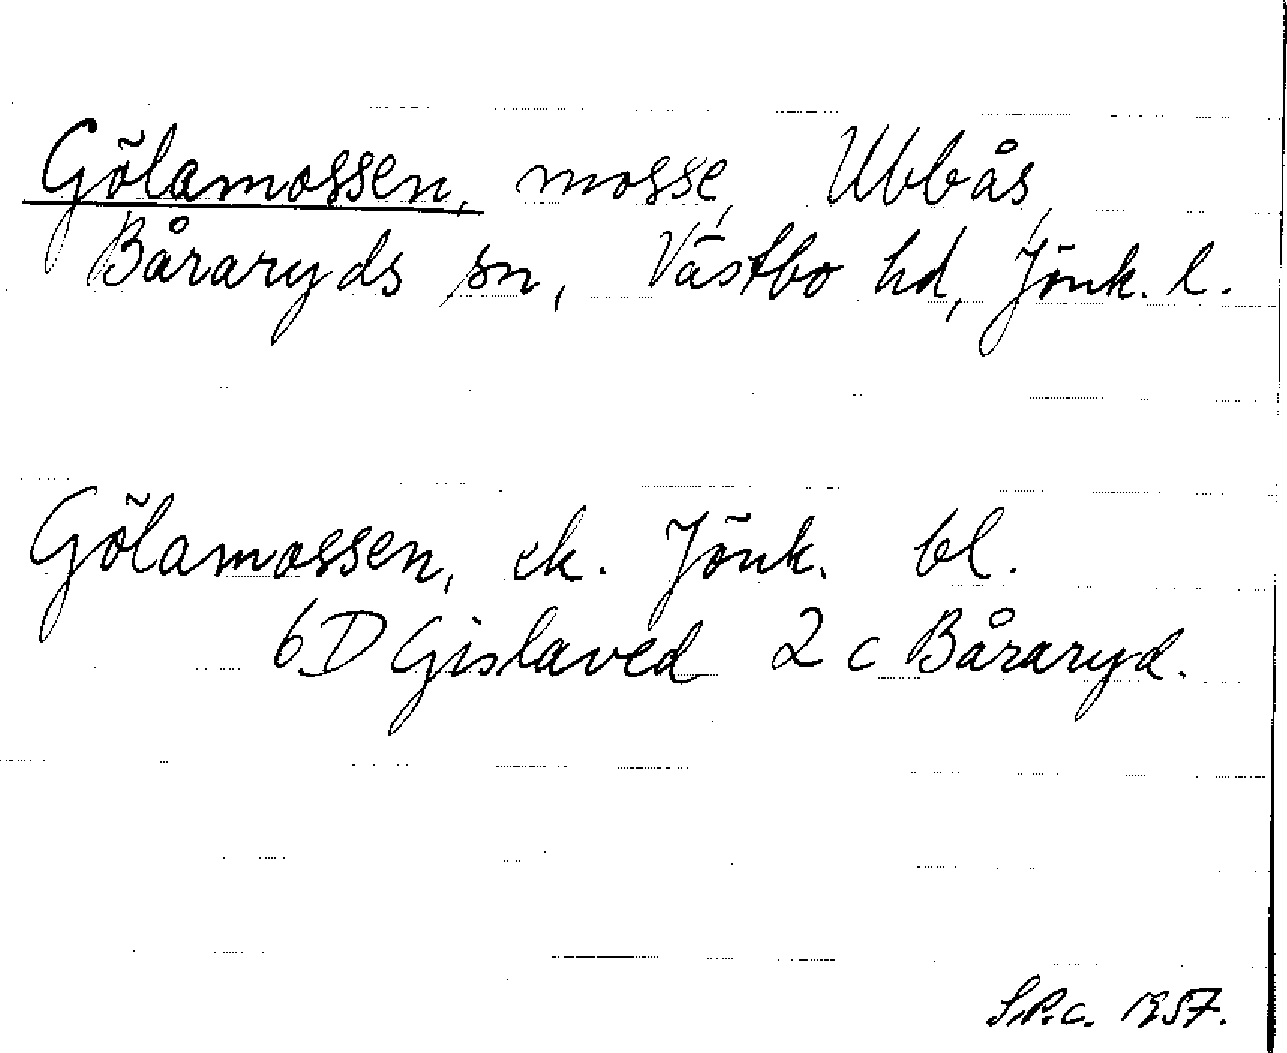 Gölamossen, mosse, Ubbås,
Båraryds sn, Västbo hd, Jönk. l.
Gölamossen, ek. Jönk. bl.
6D Gislaved 2 c Båraryd.
S.P.c. 1957.